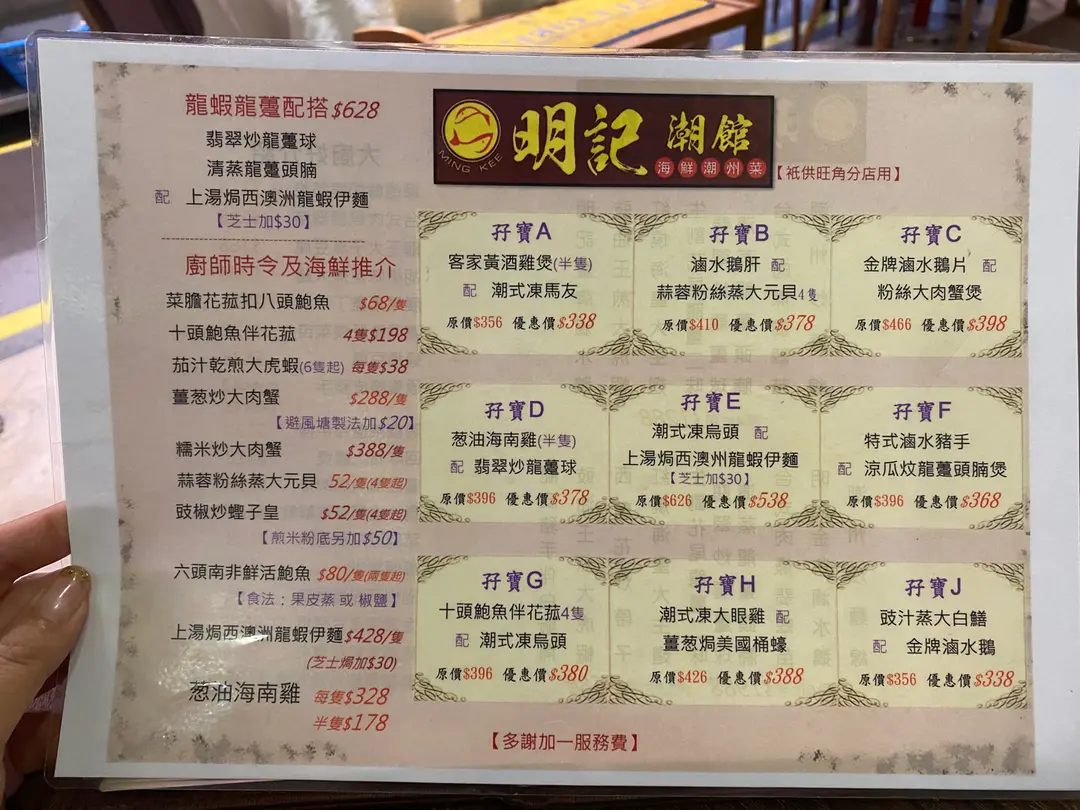 龍蝦龍躉配搭$628
翡翠炒龍躉球
清蒸龍躉頭腩
配 上湯焗西澳洲龍蝦伊麵
【芝士加$30】
廚師時令及海鮮推介
菜膽花菇扣八頭鮑魚 $68/隻
十頭鮑魚伴花菇 4隻$198
茄汁乾煎大虎蝦(6隻起) 每隻$38
薑葱炒大肉蟹 $288/隻
【避風塘製法加$20】
糯米炒大肉蟹 $388/隻
蒜蓉粉絲蒸大元貝 52/隻(4隻起)
豉椒炒蟶子皇 $52/隻(4隻起)
【煎米粉底另加$50】
六頭南非鮮活鮑魚 $80/隻(兩隻起)
【食法：果皮蒸 或 椒鹽】
上湯焗西澳洲龍蝦伊麵 $428/隻
(芝士焗加$30)
葱油海南雞 每隻$328
半隻$178
MING KEE
明記 潮館
海鮮潮州菜
【祇供旺角分店用】
孖寶A
客家黃酒雞煲(半隻)
配 潮式凍馬友
原價$356 優惠價$338
孖寶B
滷水鵝肝 配
蒜蓉粉絲蒸大元貝4隻
原價$410 優惠價$378
孖寶C
金牌滷水鵝片 配
粉絲大肉蟹煲
原價$466 優惠價$398
孖寶D
葱油海南雞(半隻)
配 翡翠炒龍躉球
原價$396 優惠價$378
孖寶E
潮式凍烏頭 配
上湯焗西澳州龍蝦伊麵
【芝士加$30】
原價$626 優惠價$538
孖寶F
特式滷水豬手
配 涼瓜炆龍躉頭腩煲
原價$396 優惠價$368
孖寶G
十頭鮑魚伴花菇4隻
配 潮式凍烏頭
原價$396 優惠價$380
孖寶H
潮式凍大眼雞 配
薑葱焗美國桶蠔
原價$426 優惠價$388
孖寶J
豉汁蒸大白鱔
配 金牌滷水鵝
原價$356 優惠價$338
【多謝加一服務費】